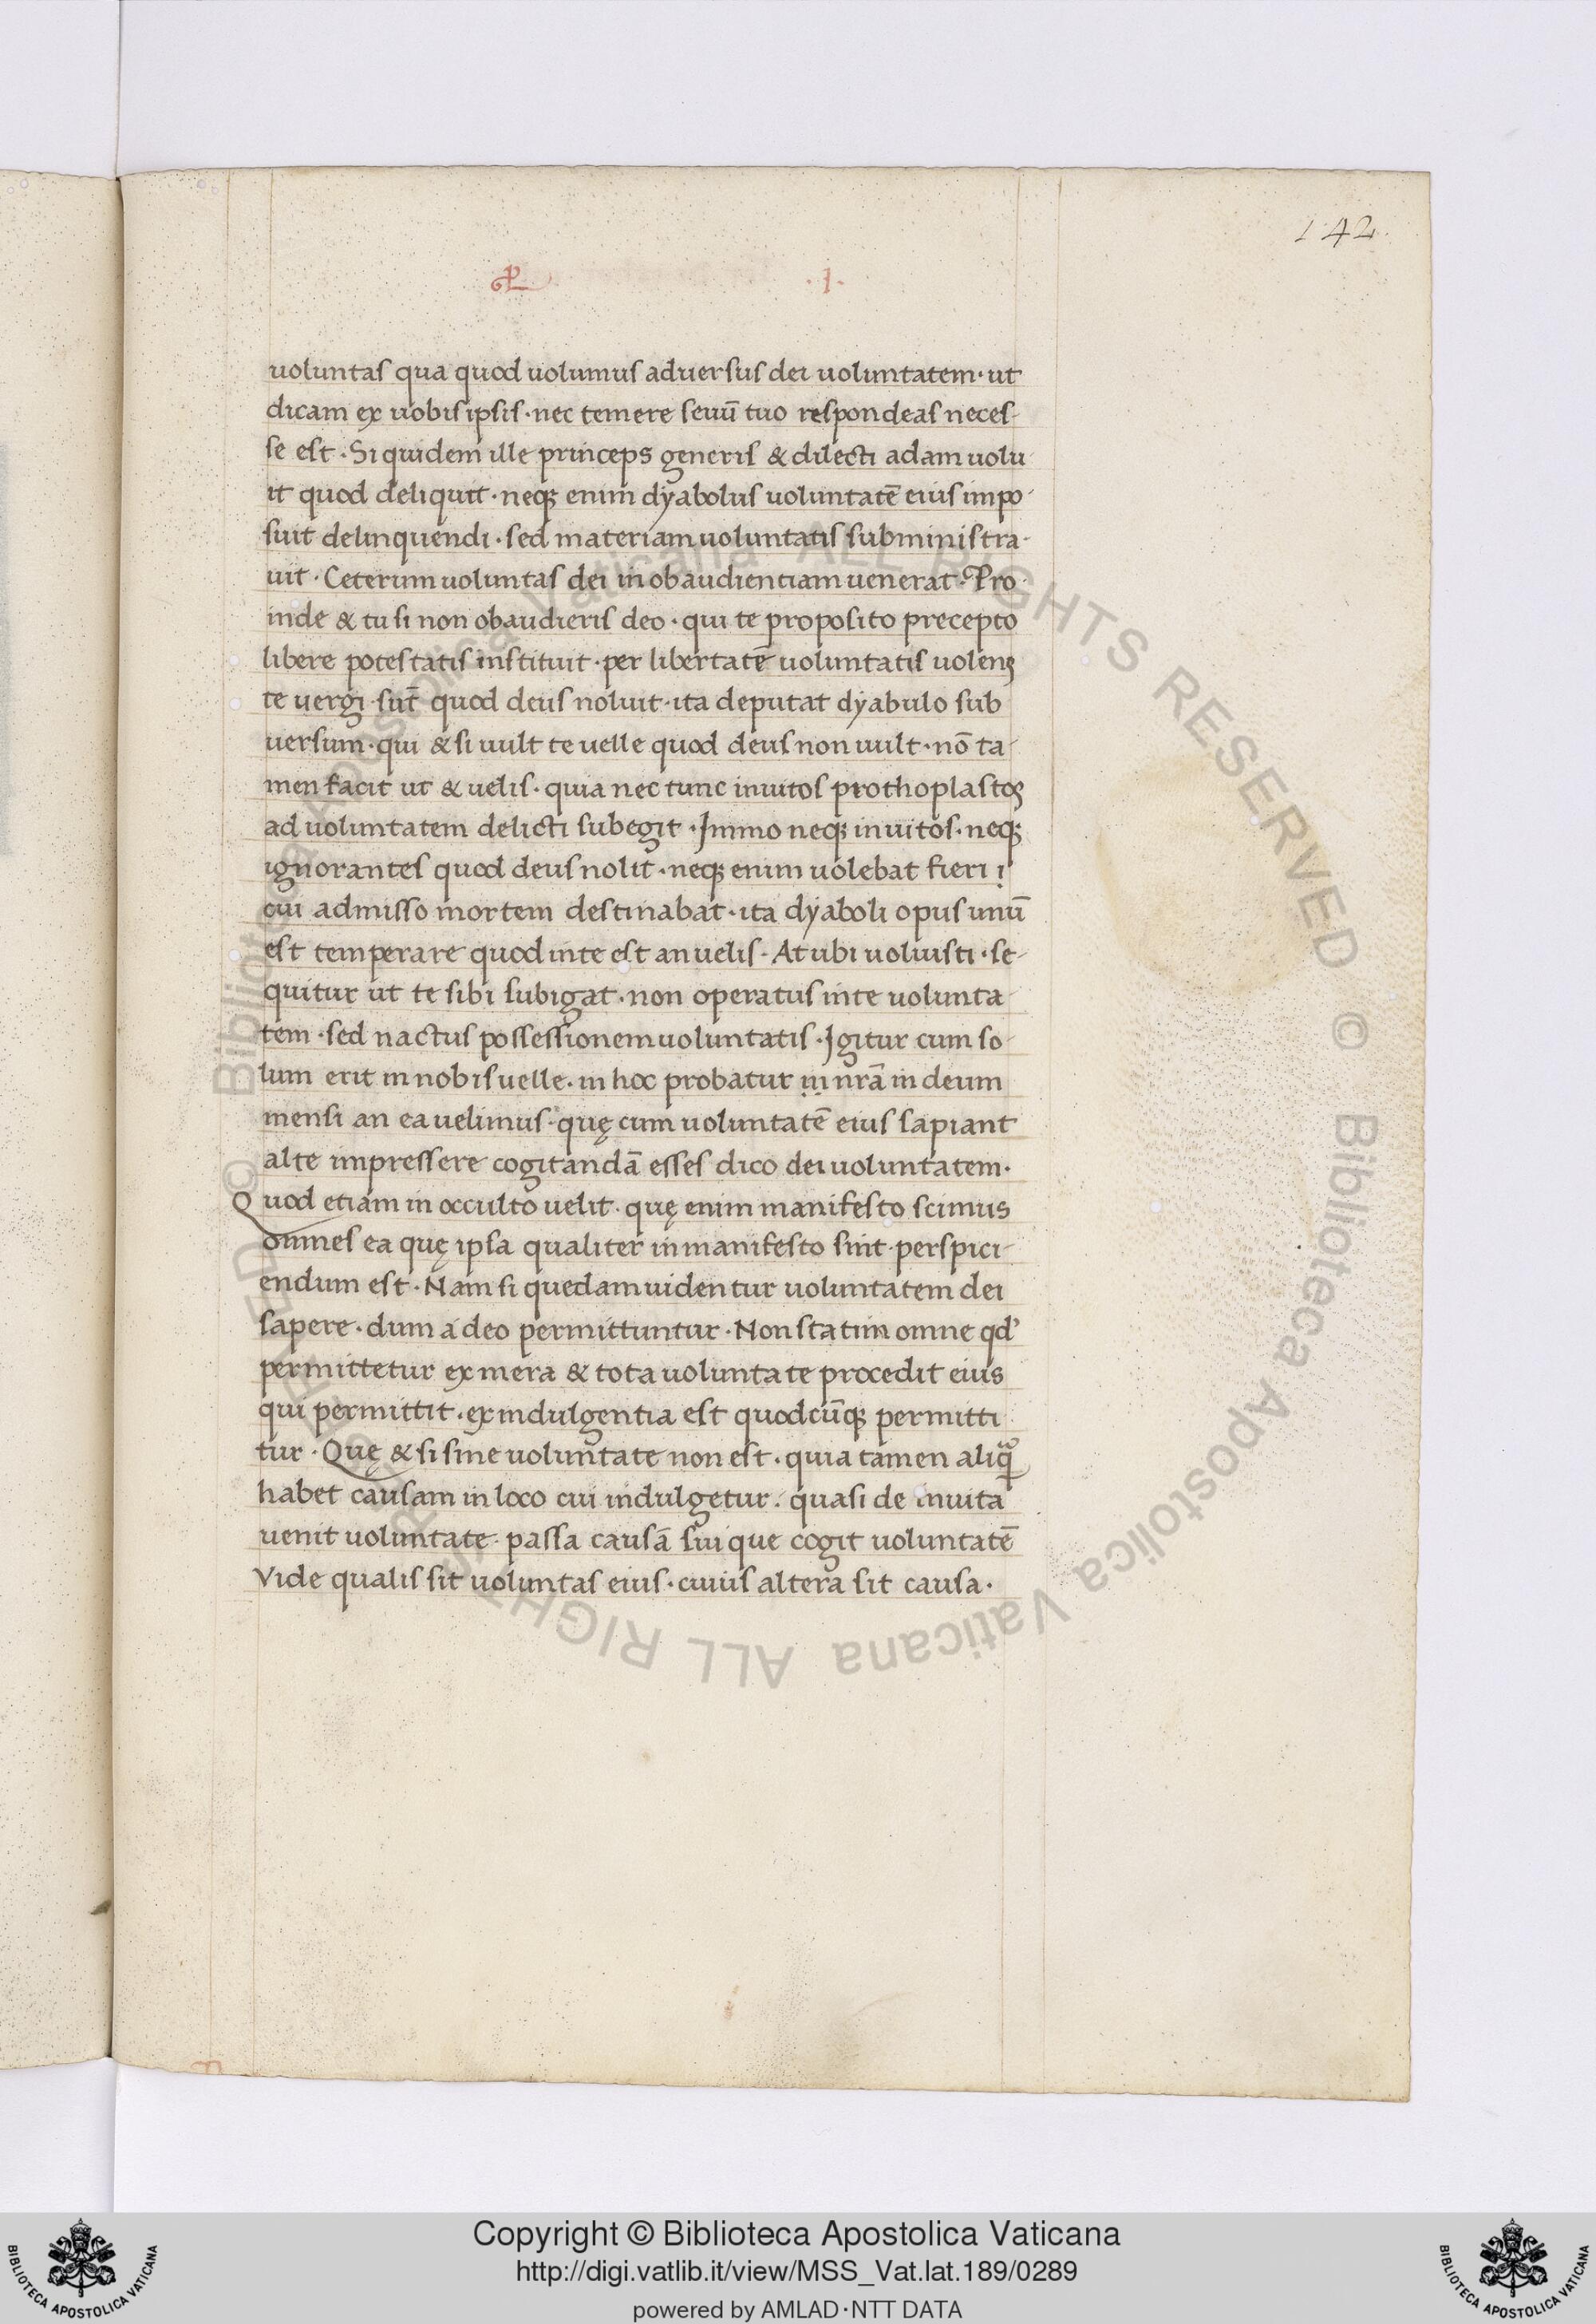 142.
.I.
uoluntas qua quod uolumus aduersus dei uoluntatem · ut
dicam ex uobis ipsis · nec temere seuū tuo respondeas neces-
se est · Si quidem ille princeps generis & dilecti adam uolu
it quod deliquit · neq; enim dyabolus uoluntatē eius impo-
suit delinquendi · sed materiam uoluntatis subministra-
uit · Ceterum uoluntas dei in obaudientiam uenerat · Pro-
inde & tu si non obaudieris deo · qui te proposito precepto
libere potestatis instituit · per libertatē uoluntatis uolens
te uergi sut̄ quod deus noluit · ita deputat dyabulo sub
uersum · qui & si uult te uelle quod deus non uult · nō ta-
men facit ut & uelis · quia nec tunc inuitos prothoplastos
ad uoluntatem delicti subegit · Immo neq; inuitos · neq;
ignorantes quod deus nolit · neq; enim uolebat fieri i
cui admisso mortem destinabat · ita dyaboli opus unū
est temperare quod in te est an uelis · At ubi uoluisti · se-
quitur ut te sibi subigat · non operatus in te uolunta-
tem · sed nactus possessionem uoluntatis · Igitur cum so-
lum erit in nobis uelle · in hoc probatur in nrā in deum
mensi an ea uelimus · quę cum uoluntatē eius sapiant
alte impressere cogitandā esses dico dei uoluntatem ·
Quod etiam in occulto uelit · quę enim manifesto scimus
omnes ea quę ipsa qualiter in manifesto sint · perspici-
endum est · Nam si quedam uidentur uoluntatem dei
sapere · dum a deo permittuntur · Non statim omne qd'
permittetur ex mera & tota uoluntate procedit eius
qui permittit · ex indulgentia est quodcūq; permitti
tur · Quę & si sine uoluntate non est · quia tamen aliqͣ
habet causam in loco cui indulgetur · quasi de inuita
uenit uoluntate · passa causā sui que cogit uoluntatē
Vide qualis sit uoluntas eius · cuius altera sit causa ·
© Biblioteca Apostolica Vaticana ALL RIGHTS RESERVED © Biblioteca Apostolica Vaticana ALL RIGHTS RESERVED
Copyright © Biblioteca Apostolica Vaticana
http://digi.vatlib.it/view/MSS_Vat.lat.189/0289
powered by AMLAD·NTT DATA
BIBLIOTECA APOSTOLICA VATICANA
BIBLIOTECA APOSTOLICA VATICANA